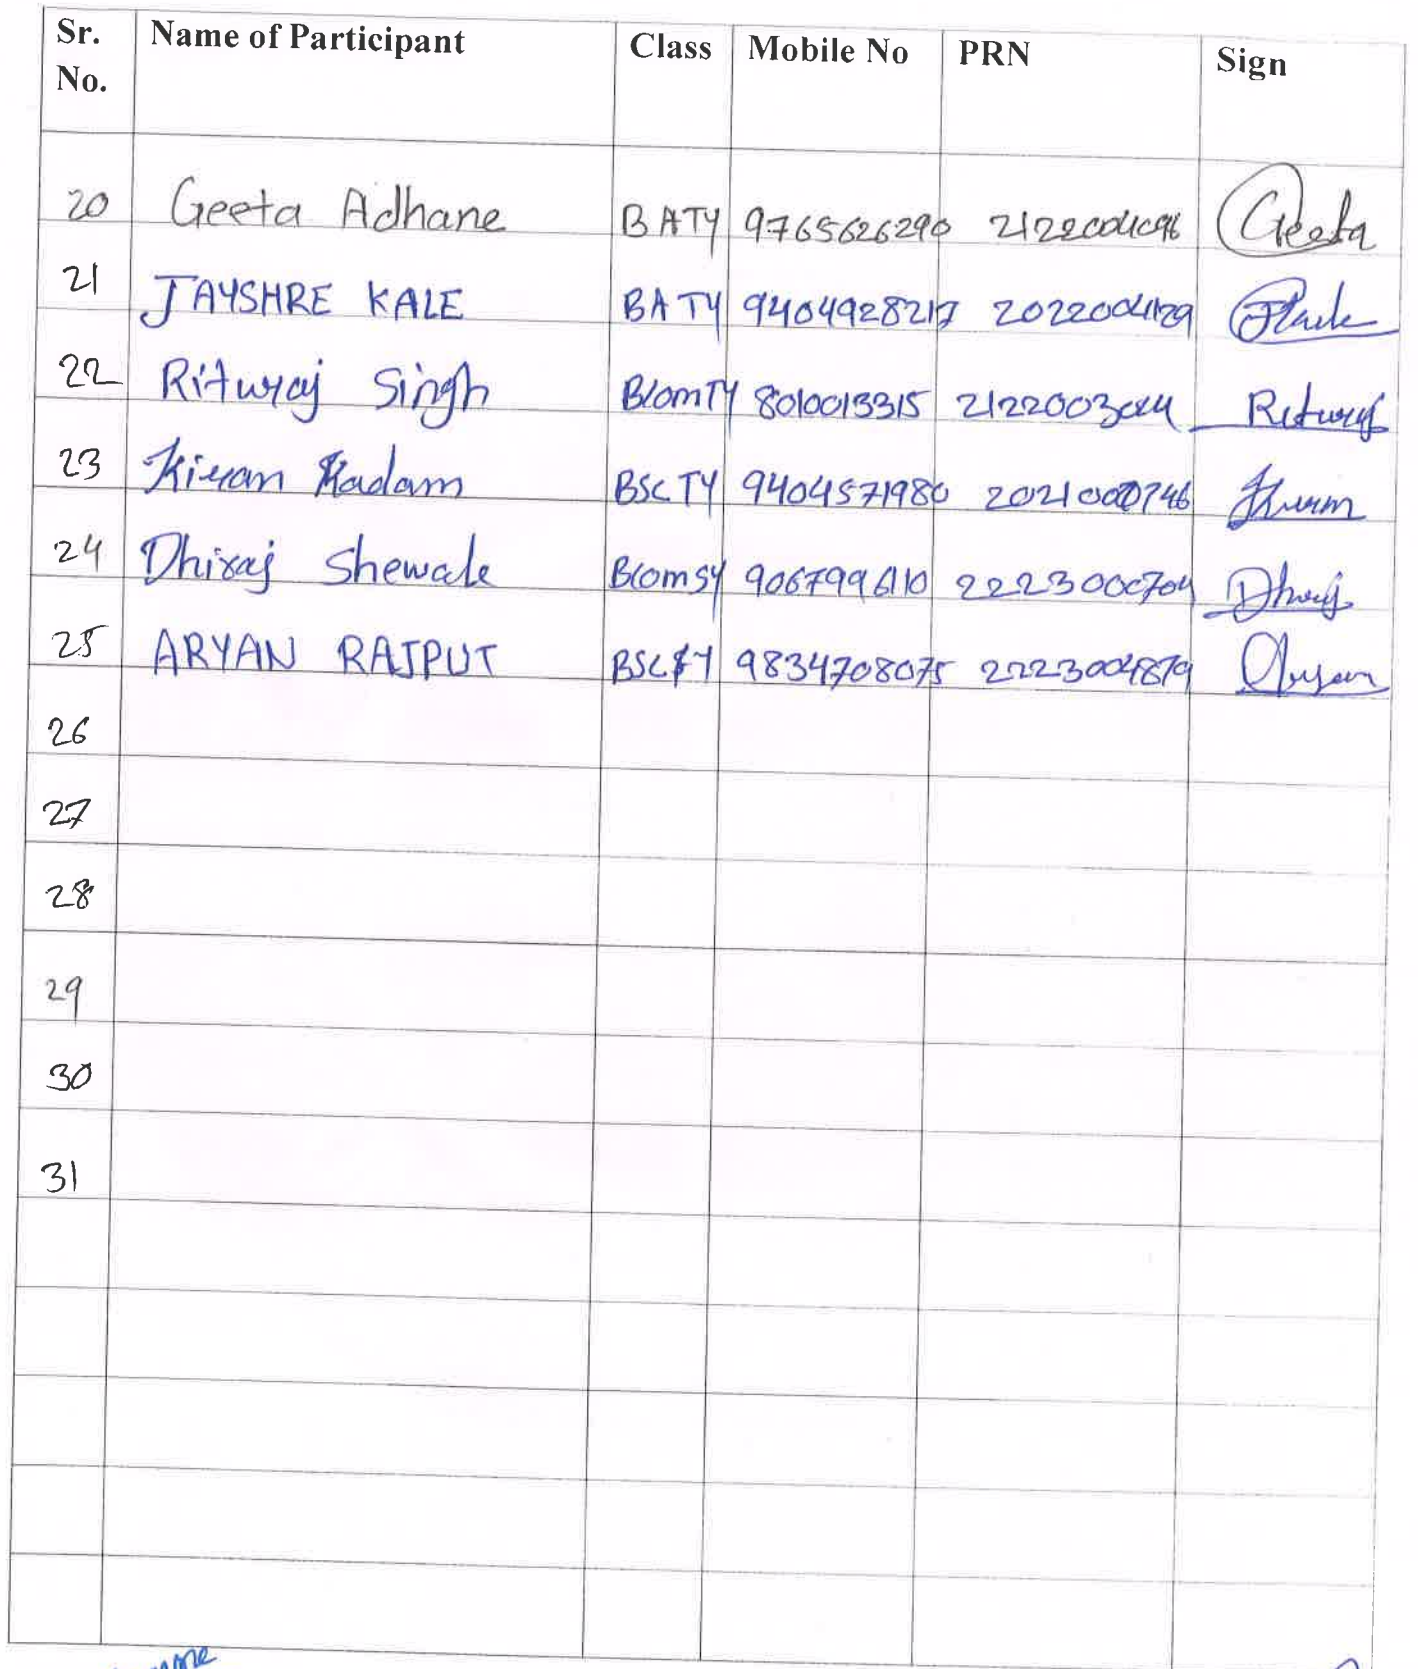 Sr. No. Name of Participant Class Mobile No PRN Sign
20 Geeta Adhane BATY 9765626290 2122004096 Geeta
21 JAYSHRE KALE BATY 9404928217 2022004129
22 Rituraj Singh BComTY 8010013315 Rituraj
23 Kiran Kadam BSCTY 9404571980 2021000746 Kiran
24 Dhiraj Shewale BComSY 9067996110 2223000704 Dhiraj
25 ARYAN RAJPUT BSCFY 9834708075 2223004879 Aryan
26
27
28
29
30
31